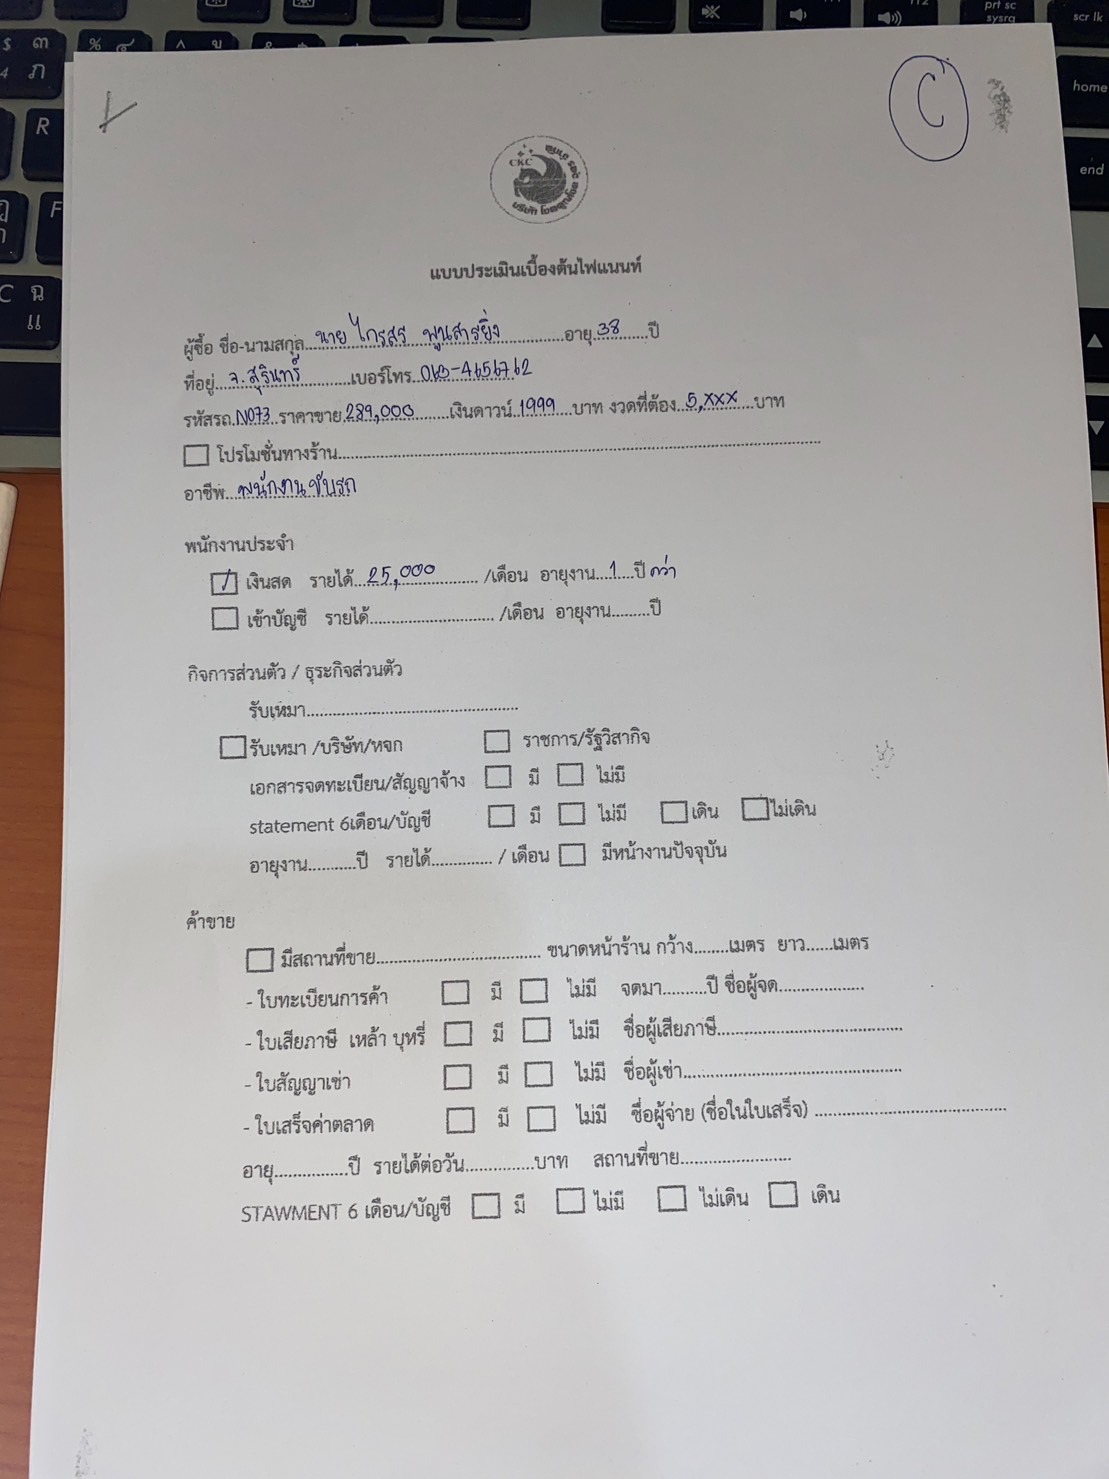 C
CKC
แบบประเมินเบื้องต้นไฟแนนท์
ผู้ซื้อ ชื่อ-นามสกุล...นาย ไกรสร พูนสารยิ่ง...อายุ.38...ปี
ที่อยู่...จ.สุรินทร์...เบอร์โทร..063-4656762
รหัสรถ.N073..ราคาขาย.289,000...เงินดาวน์.1999...บาท งวดที่ต้อง..5,xxx...บาท
โปรโมชั่นทางร้าน...
อาชีพ...พนักงานขับรถ
พนักงานประจำ
/ เงินสด รายได้...25,000... /เดือน อายุงาน...1...ปี กว่า
เข้าบัญชี รายได้... /เดือน อายุงาน...ปี
กิจการส่วนตัว / ธุระกิจส่วนตัว
รับเหมา...
รับเหมา /บริษัท/หจก ราชการ/รัฐวิสากิจ
เอกสารจดทะเบียน/สัญญาจ้าง มี ไม่มี
statement 6เดือน/บัญชี มี ไม่มี เดิน ไม่เดิน
อายุงาน...ปี รายได้... / เดือน มีหน้างานปัจจุบัน
ค้าขาย
มีสถานที่ขาย... ขนาดหน้าร้าน กว้าง...เมตร ยาว...เมตร
- ใบทะเบียนการค้า มี ไม่มี จดมา...ปี ชื่อผู้จด...
- ใบเสียภาษี เหล้า บุหรี่ มี ไม่มี ชื่อผู้เสียภาษี...
- ใบสัญญาเช่า มี ไม่มี ชื่อผู้เช่า...
- ใบเสร็จค่าตลาด มี ไม่มี ชื่อผู้จ่าย (ชื่อในใบเสร็จ) ...
อายุ...ปี รายได้ต่อวัน...บาท สถานที่ขาย...
STAWMENT 6 เดือน/บัญชี มี ไม่มี ไม่เดิน เดิน